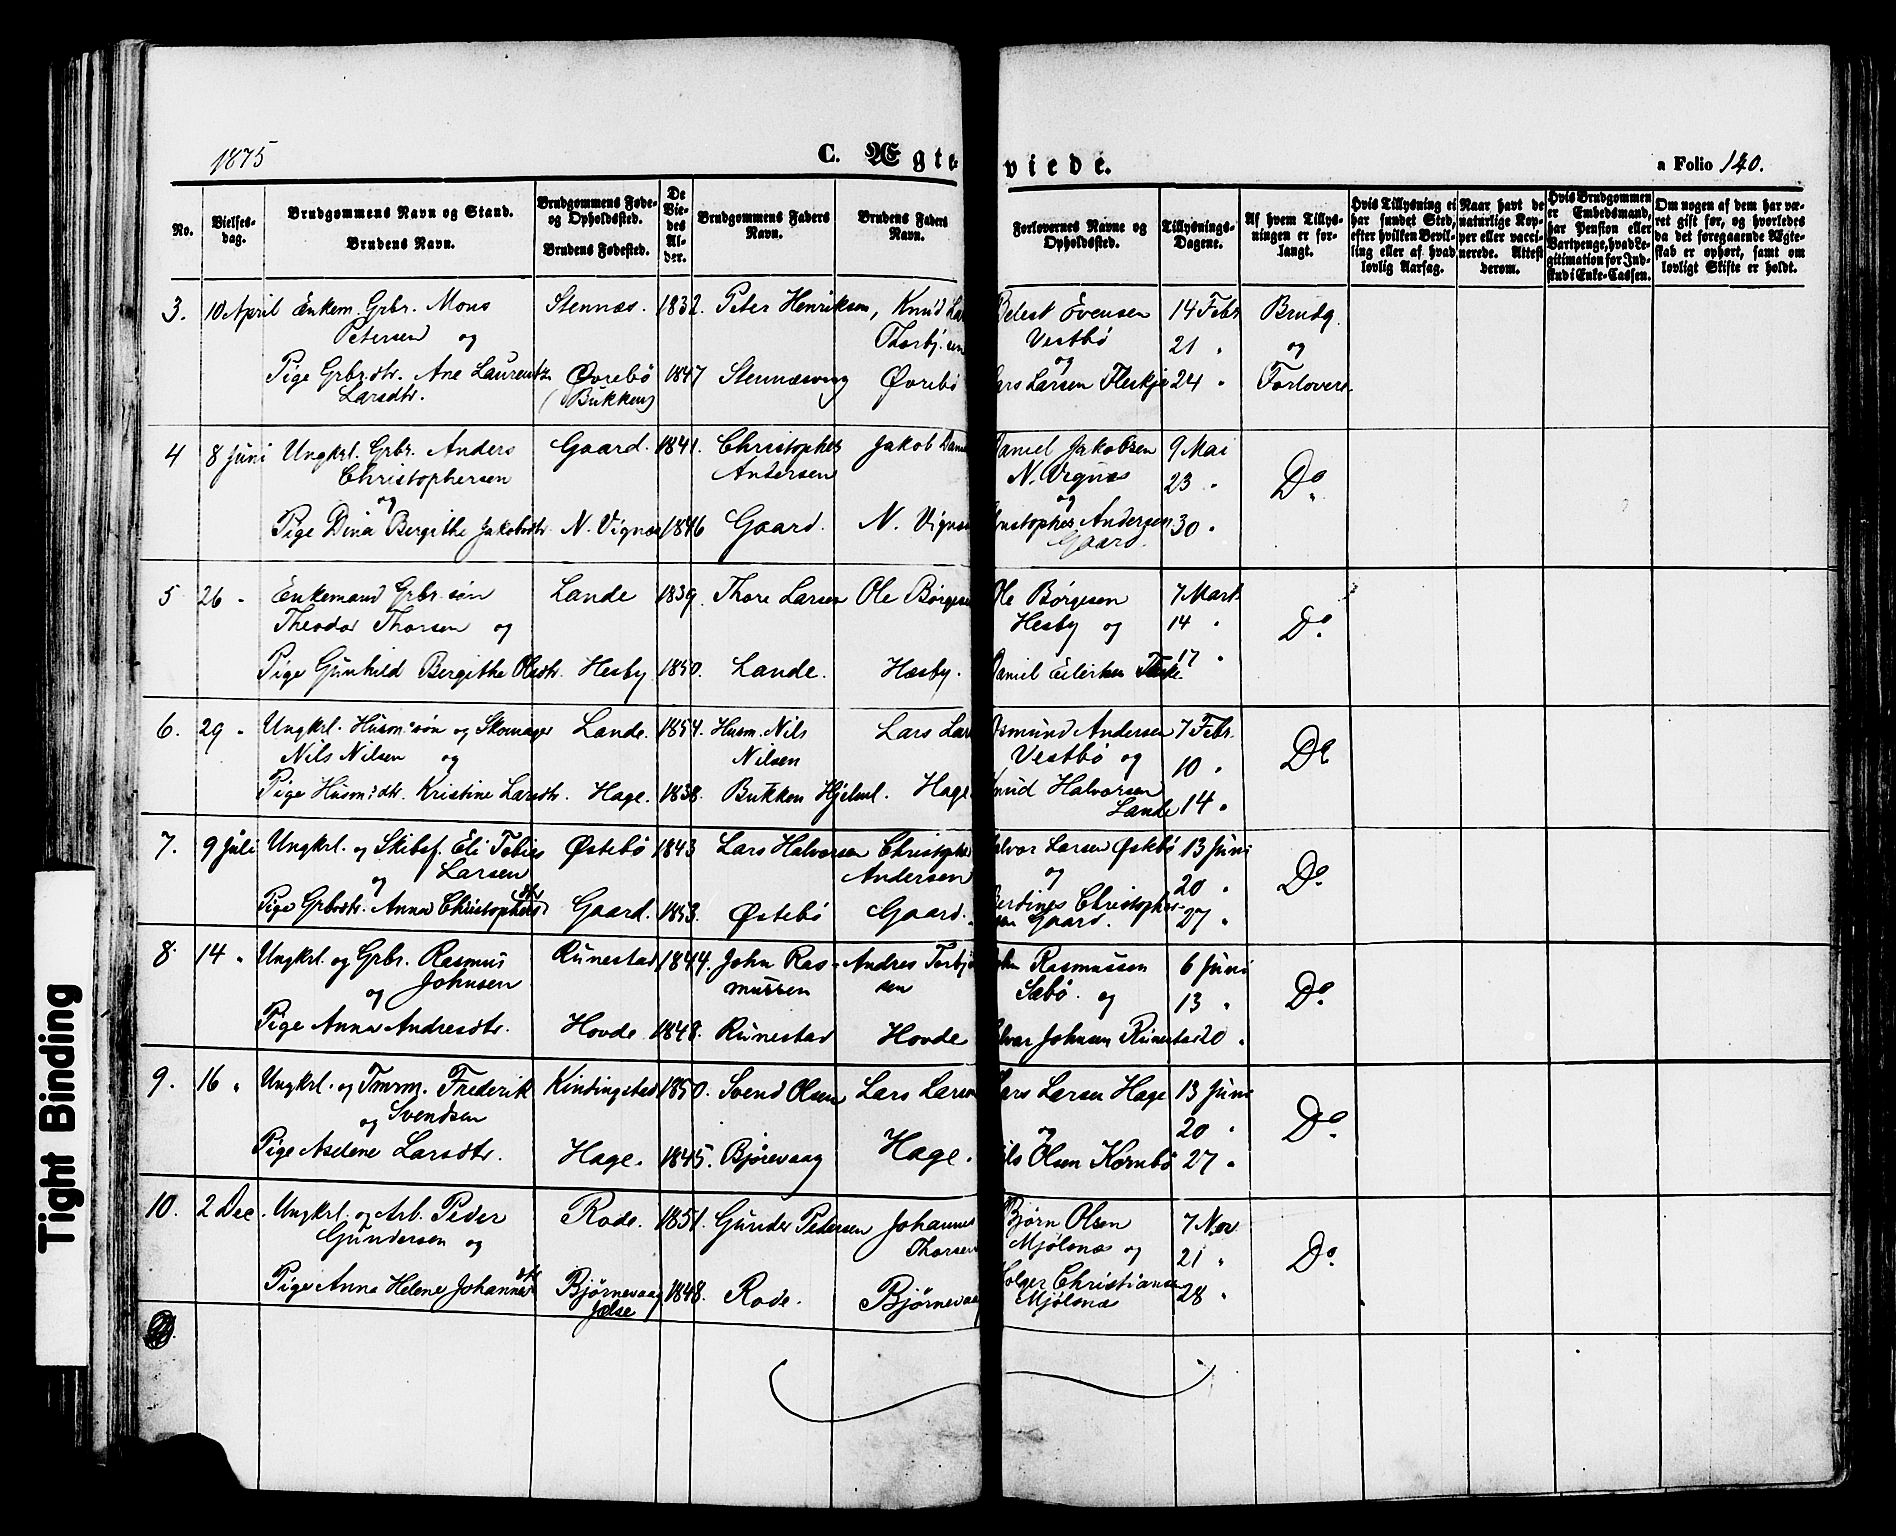 1875
C. Ægteviede.
a Folio 140.
No.
Vielses-
dag.
Brudgommens Navn og Stand.
Brudens Navn.
Brudgommens Føde-
og Opholdssted.
Brudens Fødested.
De
Vie-
des
Al-
der.
Brudgommens Faders
Navn.
Brudens Faders
Navn.
Forlovernes Navne og
Opholdssted.
Tillysnings-
Dagene.
Af hvem Tillys-
ningen er for-
langt.
Hvis Tillysning ei
har fundet Sted,
efter hvilken Bevil-
ling eller af hvad
lovlig Aarsag.
Naar havt de
naturlige Kop-
per eller vacci-
nerede. Attest
derom.
Hvis Brudgommen
er Embedsmand,
har Pension eller
Vartpenge, hvad Le-
gitimation for Ind-
skud i Enke-Cassen.
Om nogen af dem har væ-
ret gift før, og hvorledes
da det foregaaende Ægte-
skab er ophørt, samt om
lovligt Skifte er holdt.
3. 10 April Enkem. Grbr. Mons Stennæs. 1832. Peter Henriksen, Knud Lar Belest Evensen 14 Febr Brudg.
Petersen og Thorbj.sen Vestbø 21 " og
og
Pige Grbr.dtr. Ane Laurentze Øvrebø 1847 Stennæsvag Øvrebø Lars Larsen Fleskje 24 " Forlovere
Larsdtr. (Bukken)
4 8 Juni Ungkrl. Grbr. Anders Gaard. 1841. Christopher Jakob Dani Daniel Jakobsen 9 Mai
Christophersen Andersen N. Vignæs 23 " Do
og og
Pige Dina Bergithe Jakobsdtr. N. Vignæs 1846 Gaard. N. Vignæs Christopher Andersen 30 "
Gaard.
5 26 " Enkemand Grbr.søn Lande 1839. Thore Larsen Ole Børgesen Ole Børgesen 7 Mart.
Theodor Thorsen og Hesby og 14 " Do.
Pige Gunhild Bergithe Olsdtr. Hesby 1850. Lande. Hæsby. Daniel Eilertsen 17 "
6. 29 " Ungkrl. Husm.søn og Skomager Lande. 1854. Husm. Nils Lars Lar Osmund Andersen 7 Febr.
Nils Nilsen og Nilsen Vestbø og 10 " Do
Pige Husm.dtr. Kristine Larsdtr. Hage. 1838. Bukken Hjelml. Hage Knud Halvorsen
Lande 14 "
7. 9 Juli Ungkrl. og Skibsf. Eli Tobias Østebø 1843 Lars Halvorsen Christopher Halvor Larsen Østebø 13 Juni
og Larsen Andersen og 20 " Do.
Pige Grbrdtr. Anna Christophersdtr Gaard. 1853. Østebø Gaard. Berdines Christopher-
sen Gaard. 27 "
8. 14 " Ungkrl. og Grbr. Rasmus Runestad 1844. John Ras- Andres Torbjø John Rasmussen 6 Juni
og Johnsen mussen sen Sæbø. og 13 " Do.
Pige Anna Andresdtr. Hovde 1848. Runestad Hovde Halvar Johnsen Runestad 20 "
9. 16 " Ungkrl. og Tmrm. Frederik Kindingstad 1850. Svend Olsen Lars Larsen Lars Larsen Hage 13 Juni
og Svendsen og 20 " Do.
Pige Aselene Larsdtr. Hage. 1845. Bjørevaag Hage. Nils Olsen Kornbø 27 "
10. 2 Dec. Ungkrl. og Arb. Peder Rode. 1851. Gunder Pedersen Johannes Bjørn Olsen 7 Nov
Gundersen og Thorsen Mjølsnæs og 21 " Do.
Pige Anna Helene Johannesdtr Bjørnevaag 1848. Rode. Bjørnevaag Holger Christiansen
Jelse Mjølsnæs 28 "
Tight Binding